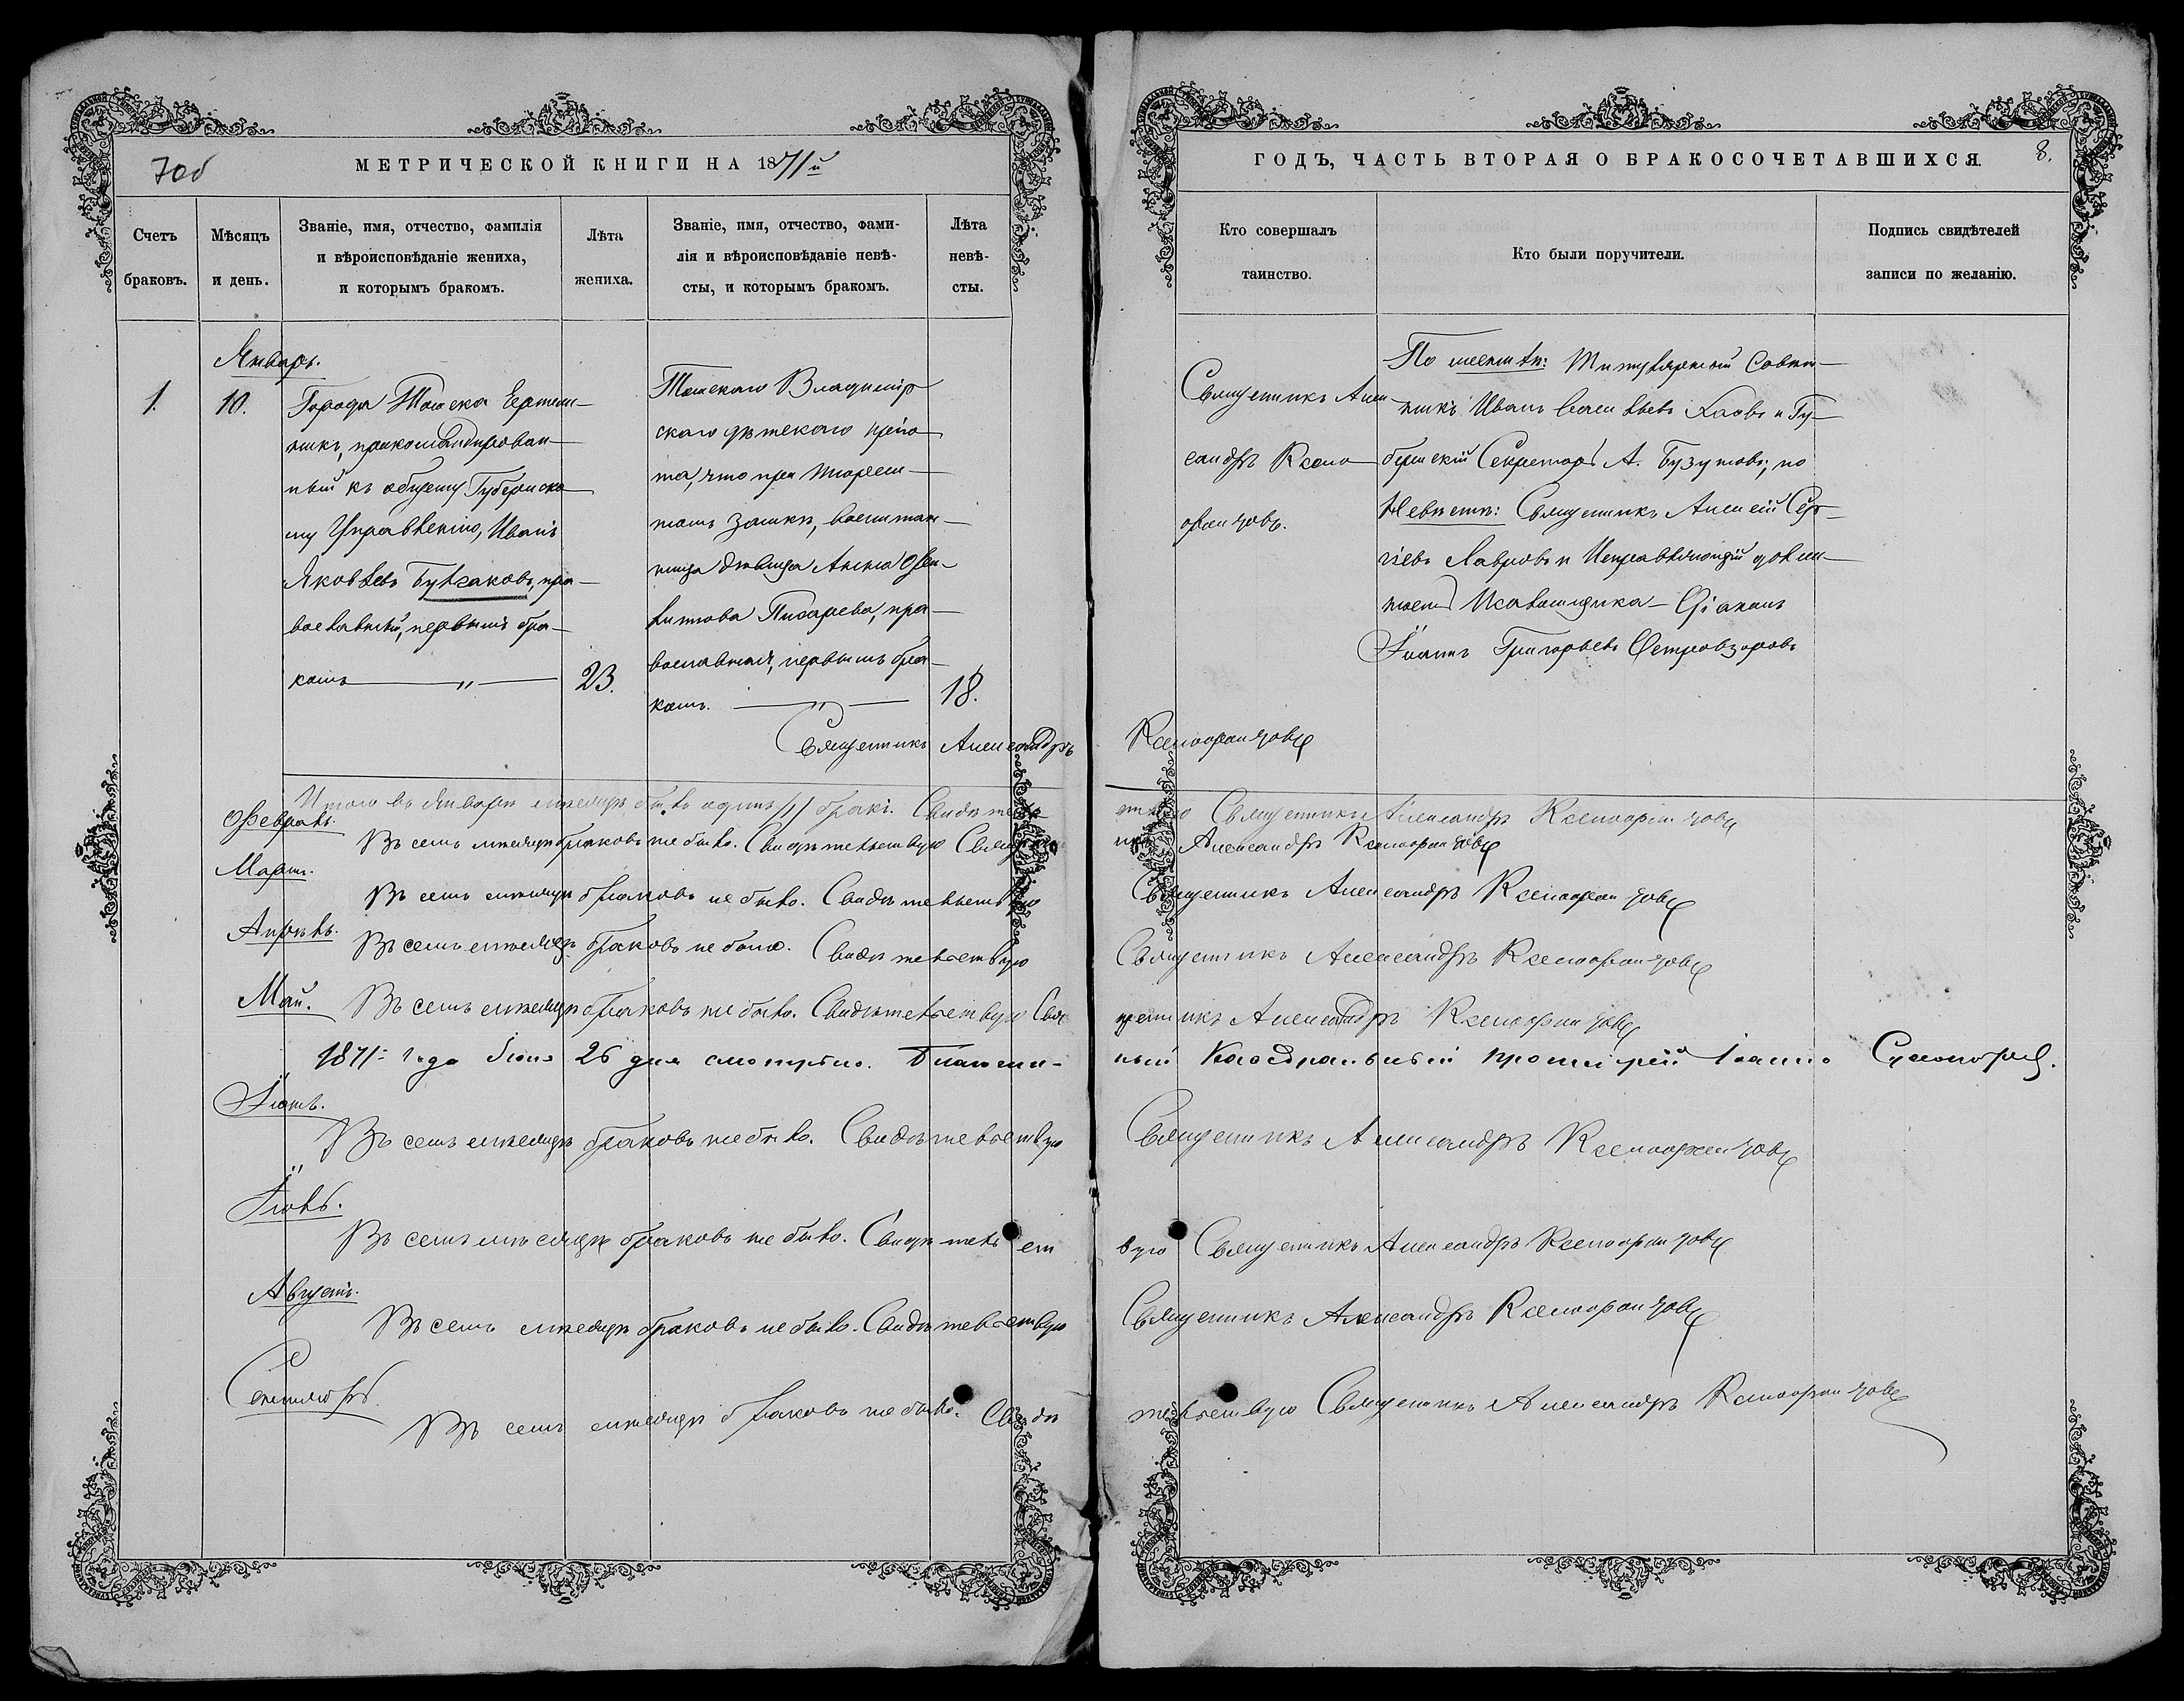 7об
МЕТРИЧЕСКОЙ КНИГИ НА 1871й
Счетъ браковъ.
Мѣсяцъ и день.
Званіе, имя, отчество, фамилія
и вѣроисповѣданіе жениха,
и которымъ бракомъ.
Лѣта жениха.
Званіе, имя, отчество, фами-
лія и вѣроисповѣданіе невѣ-
сты, и которымъ бракомъ.
Лѣта невѣ-
сты.
Январь.
1.
10.
Города Томска
никъ, прикомандирован-
ный къ общему Губернско-
му Управленію, Иванъ
Яковлевъ Булгаковъ, пра-
вославный, первымъ бра-
комъ — „ —
23.
Томскаго Владимір
скаго дѣтскаго прію
та, что при Тюрем-
номъ замкѣ, воспитан-
ница дѣвица Анна
Писарева, пра-
вославная, первымъ бра-
комъ. — „ —
18.
Священникъ Александръ
Итого въ Январѣ мѣсяцѣ былъ одинъ /1/ бракъ. Свидѣтель
Февраль.
Въ семъ мѣсяцѣ браковъ не было. Свидѣтельствую Священ
Мартъ.
Въ семъ мѣсяцѣ браковъ не было. Свидѣтельствую
Апрѣль.
Въ семъ мѣсяцѣ браковъ не было. Свидѣтельствую
Май.
Въ семъ мѣсяцѣ браковъ не было. Свидѣтельствую Свя
1871: года Іюня 26 дня смотрѣно. Благочин-
Іюнь.
Въ семъ мѣсяцѣ браковъ не было. Свидѣтельствую
Іюль.
Въ семъ мѣсяцѣ браковъ не было. Свидѣтельст
Августъ.
Въ семъ мѣсяцѣ браковъ не было. Свидѣтельствую
Сентябрь
Въ семъ мѣсяцѣ браковъ не было. Свидѣ
ГОДЪ, ЧАСТЬ ВТОРАЯ О БРАКОСОЧЕТАВШИХСЯ.
8.
Кто совершалъ
таинство.
Кто были поручители.
Подпись свидѣтелей
записи по желанію.
Священникъ Алек
сандръ Ксено
фонтовъ.
По женихѣ: Титулярный Совѣт-
никъ Иванъ Васильевъ и Гу-
бернскій Секретарь А. Бузутовъ; по
Невѣстѣ: Священникъ Алексій Сер-
гіевъ Лавровъ и Исправляющій долж-
ность Псаломщика - Діаконъ
Іоаннъ Григорьевъ
Ксенофонтовъ
ствую Священникъ Александръ Ксенофонтовъ
никъ Александръ Ксенофонтовъ
Священникъ Александръ Ксенофонтовъ
Священникъ Александръ Ксенофонтовъ
щенникъ Александръ Ксенофонтовъ
ный Каѳедральный протоіерей Іоаннъ
Священникъ Александръ Ксенофонтовъ
вую Священникъ Александръ Ксенофонтовъ
Священникъ Александръ Ксенофонтовъ
тельствую Священникъ Александръ Ксенофонтовъ